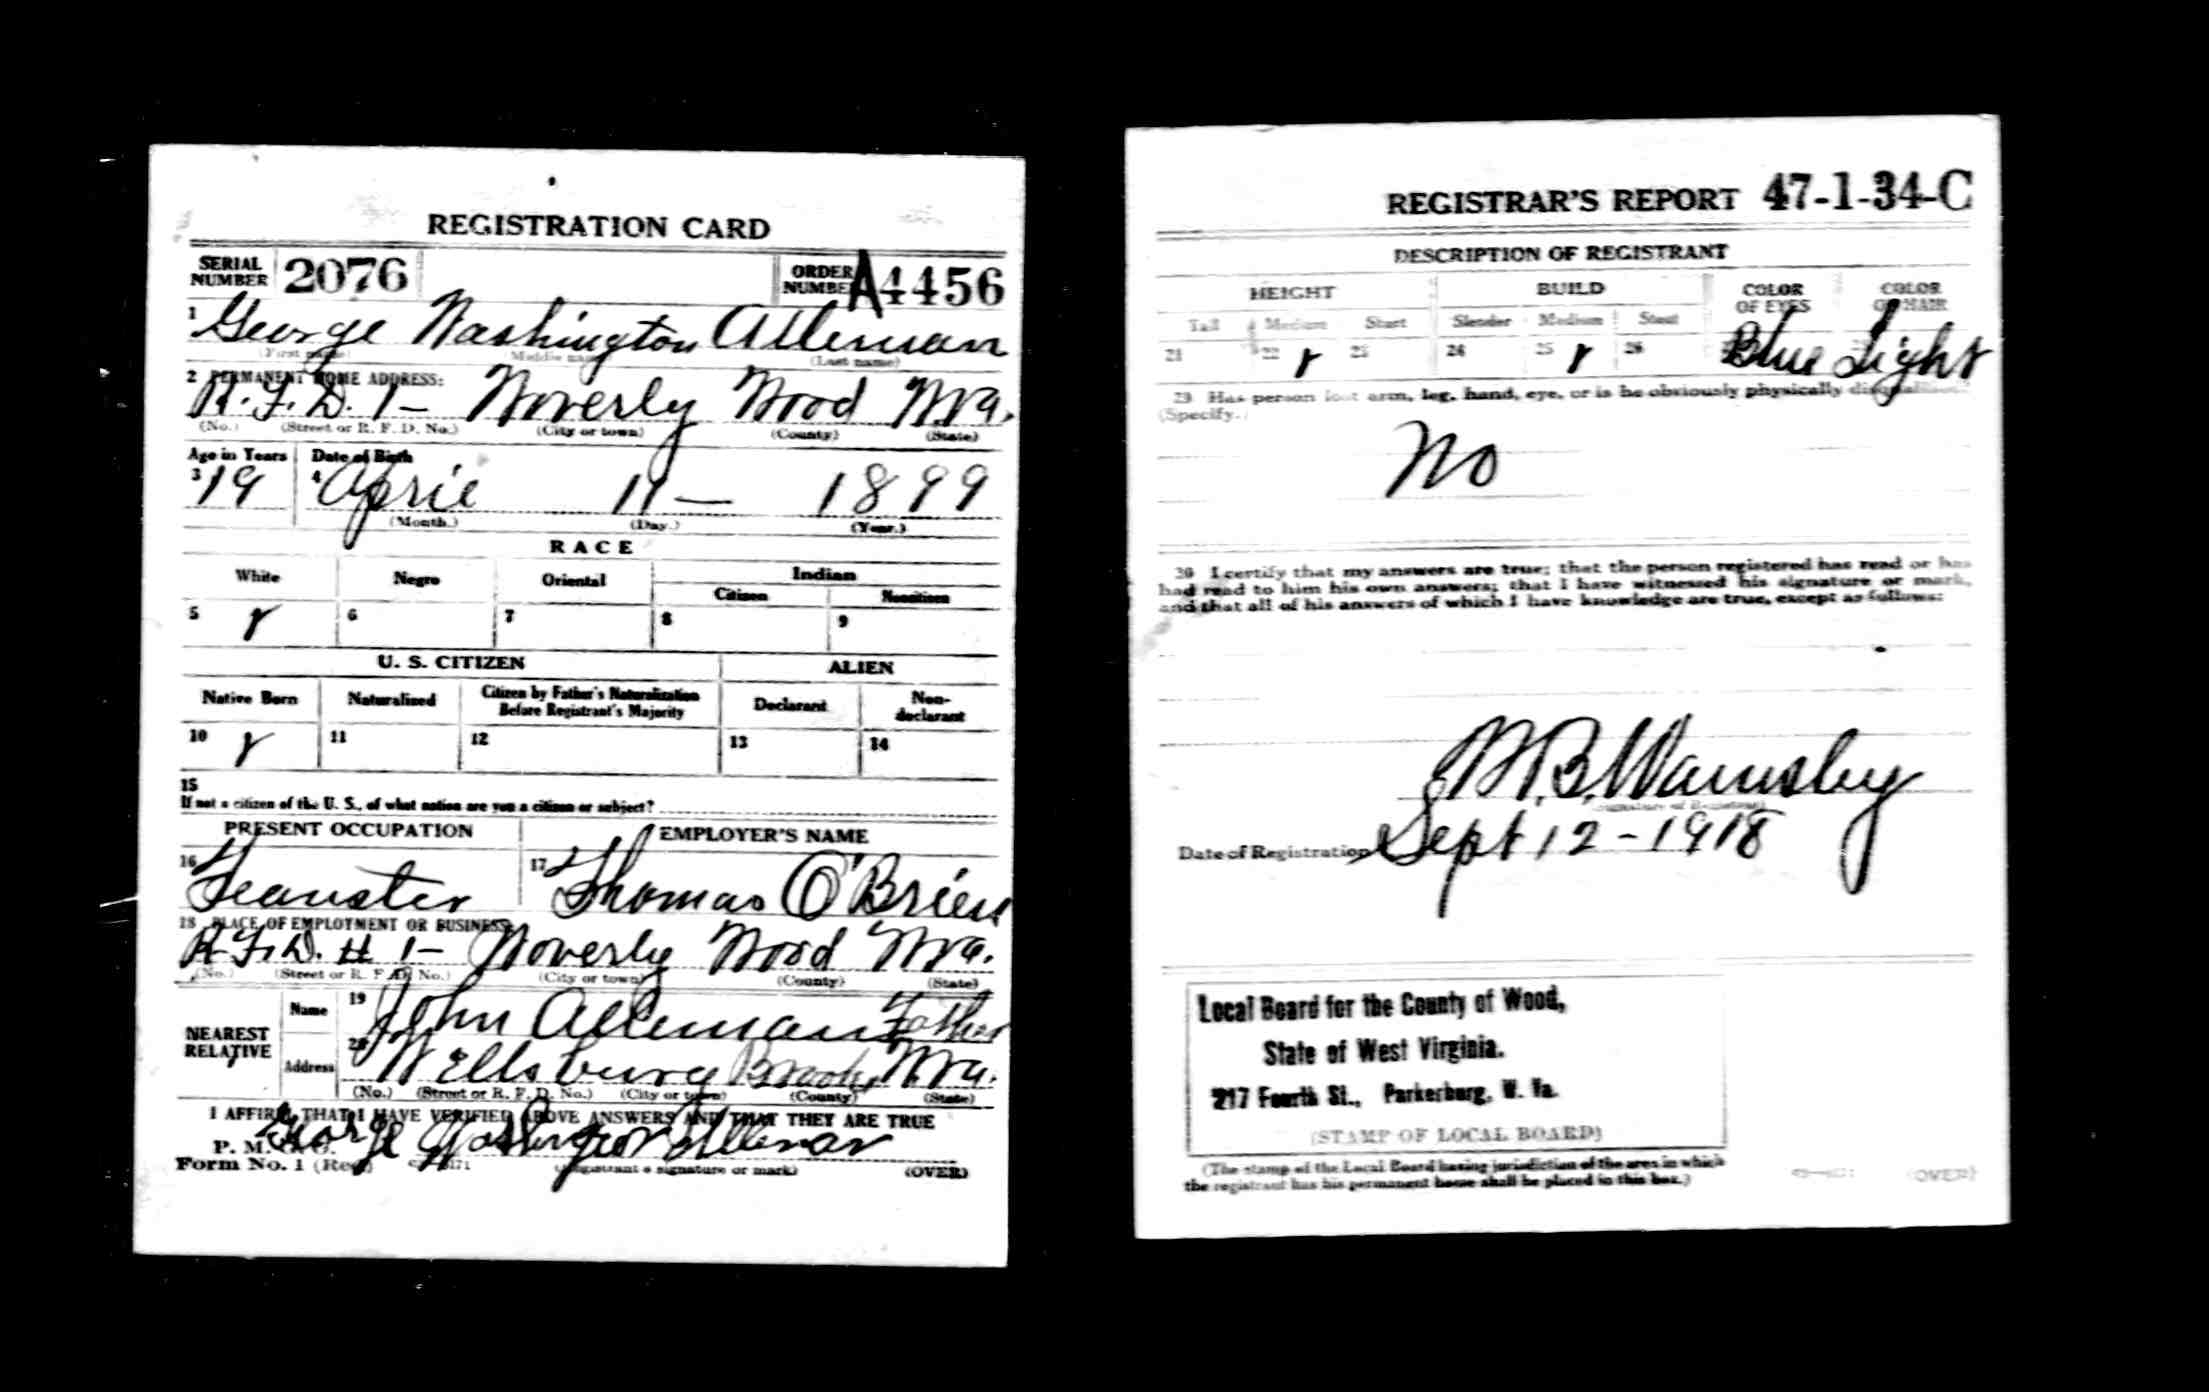 REGISTRATION CARD
SERIAL NUMBER 2076 ORDER NUMBER A4456
1 George Washington Alleman
(First name) (Middle name) (Last name)
2 PERMANENT HOME ADDRESS:
R.F.D. 1- Woverly Wood W.Va.
(No.) (Street or R. F. D. No.) (City or town) (County) (State)
Age in Years Date of Birth
3 19 4 April 11 - 1899
(Month.) (Day.) (Year.)
RACE
White Negro Oriental Indian
Citizen Noncitizen
5 6 7 8 9
U. S. CITIZEN ALIEN
Native Born Naturalized Citizen by Father's Naturalization Before Registrant's Majority Declarant Non-declarant
10 11 12 13 14
15
If not a citizen of the U. S., of what nation are you a citizen or subject?
PRESENT OCCUPATION EMPLOYER'S NAME
16 Teamster 17 Thomas O'Brien
18 PLACE OF EMPLOYMENT OR BUSINESS:
R.F.D. # 1- Woverly Wood W.Va.
(No.) (Street or R. F. D. No.) (City or town) (County) (State)
NEAREST RELATIVE Name 19 John Alleman Father
Address 20 Wellsburg Brooke W.Va.
(No.) (Street or R. F. D. No.) (City or town) (County) (State)
I AFFIRM THAT I HAVE VERIFIED ABOVE ANSWERS AND THAT THEY ARE TRUE
P. M. G. O.
George Washington Alleman
Form No. 1 (Red) (Registrant's signature or mark) (OVER)
REGISTRAR'S REPORT 47-1-34-C
DESCRIPTION OF REGISTRANT
HEIGHT BUILD COLOR OF EYES COLOR OF HAIR
Tall Medium Short Slender Medium Stout
21 22 23 24 25 26 Blue Light
29 Has person lost arm, leg, hand, eye, or is he obviously physically disqualified?
(Specify.)
No
30 I certify that my answers are true; that the person registered has read or has
had read to him his own answers; that I have witnessed his signature or mark,
and that all of his answers of which I have knowledge are true, except as follows:
Wamsley
(Signature of Registrar)
Date of Registration Sept 12-1918
Local Board for the County of Wood,
State of West Virginia.
217 Fourth St., Parkersburg, W. Va.
(STAMP OF LOCAL BOARD)
(The stamp of the Local Board having jurisdiction of the area in which
the registrant has his permanent home shall be placed in this box.)
(OVER)